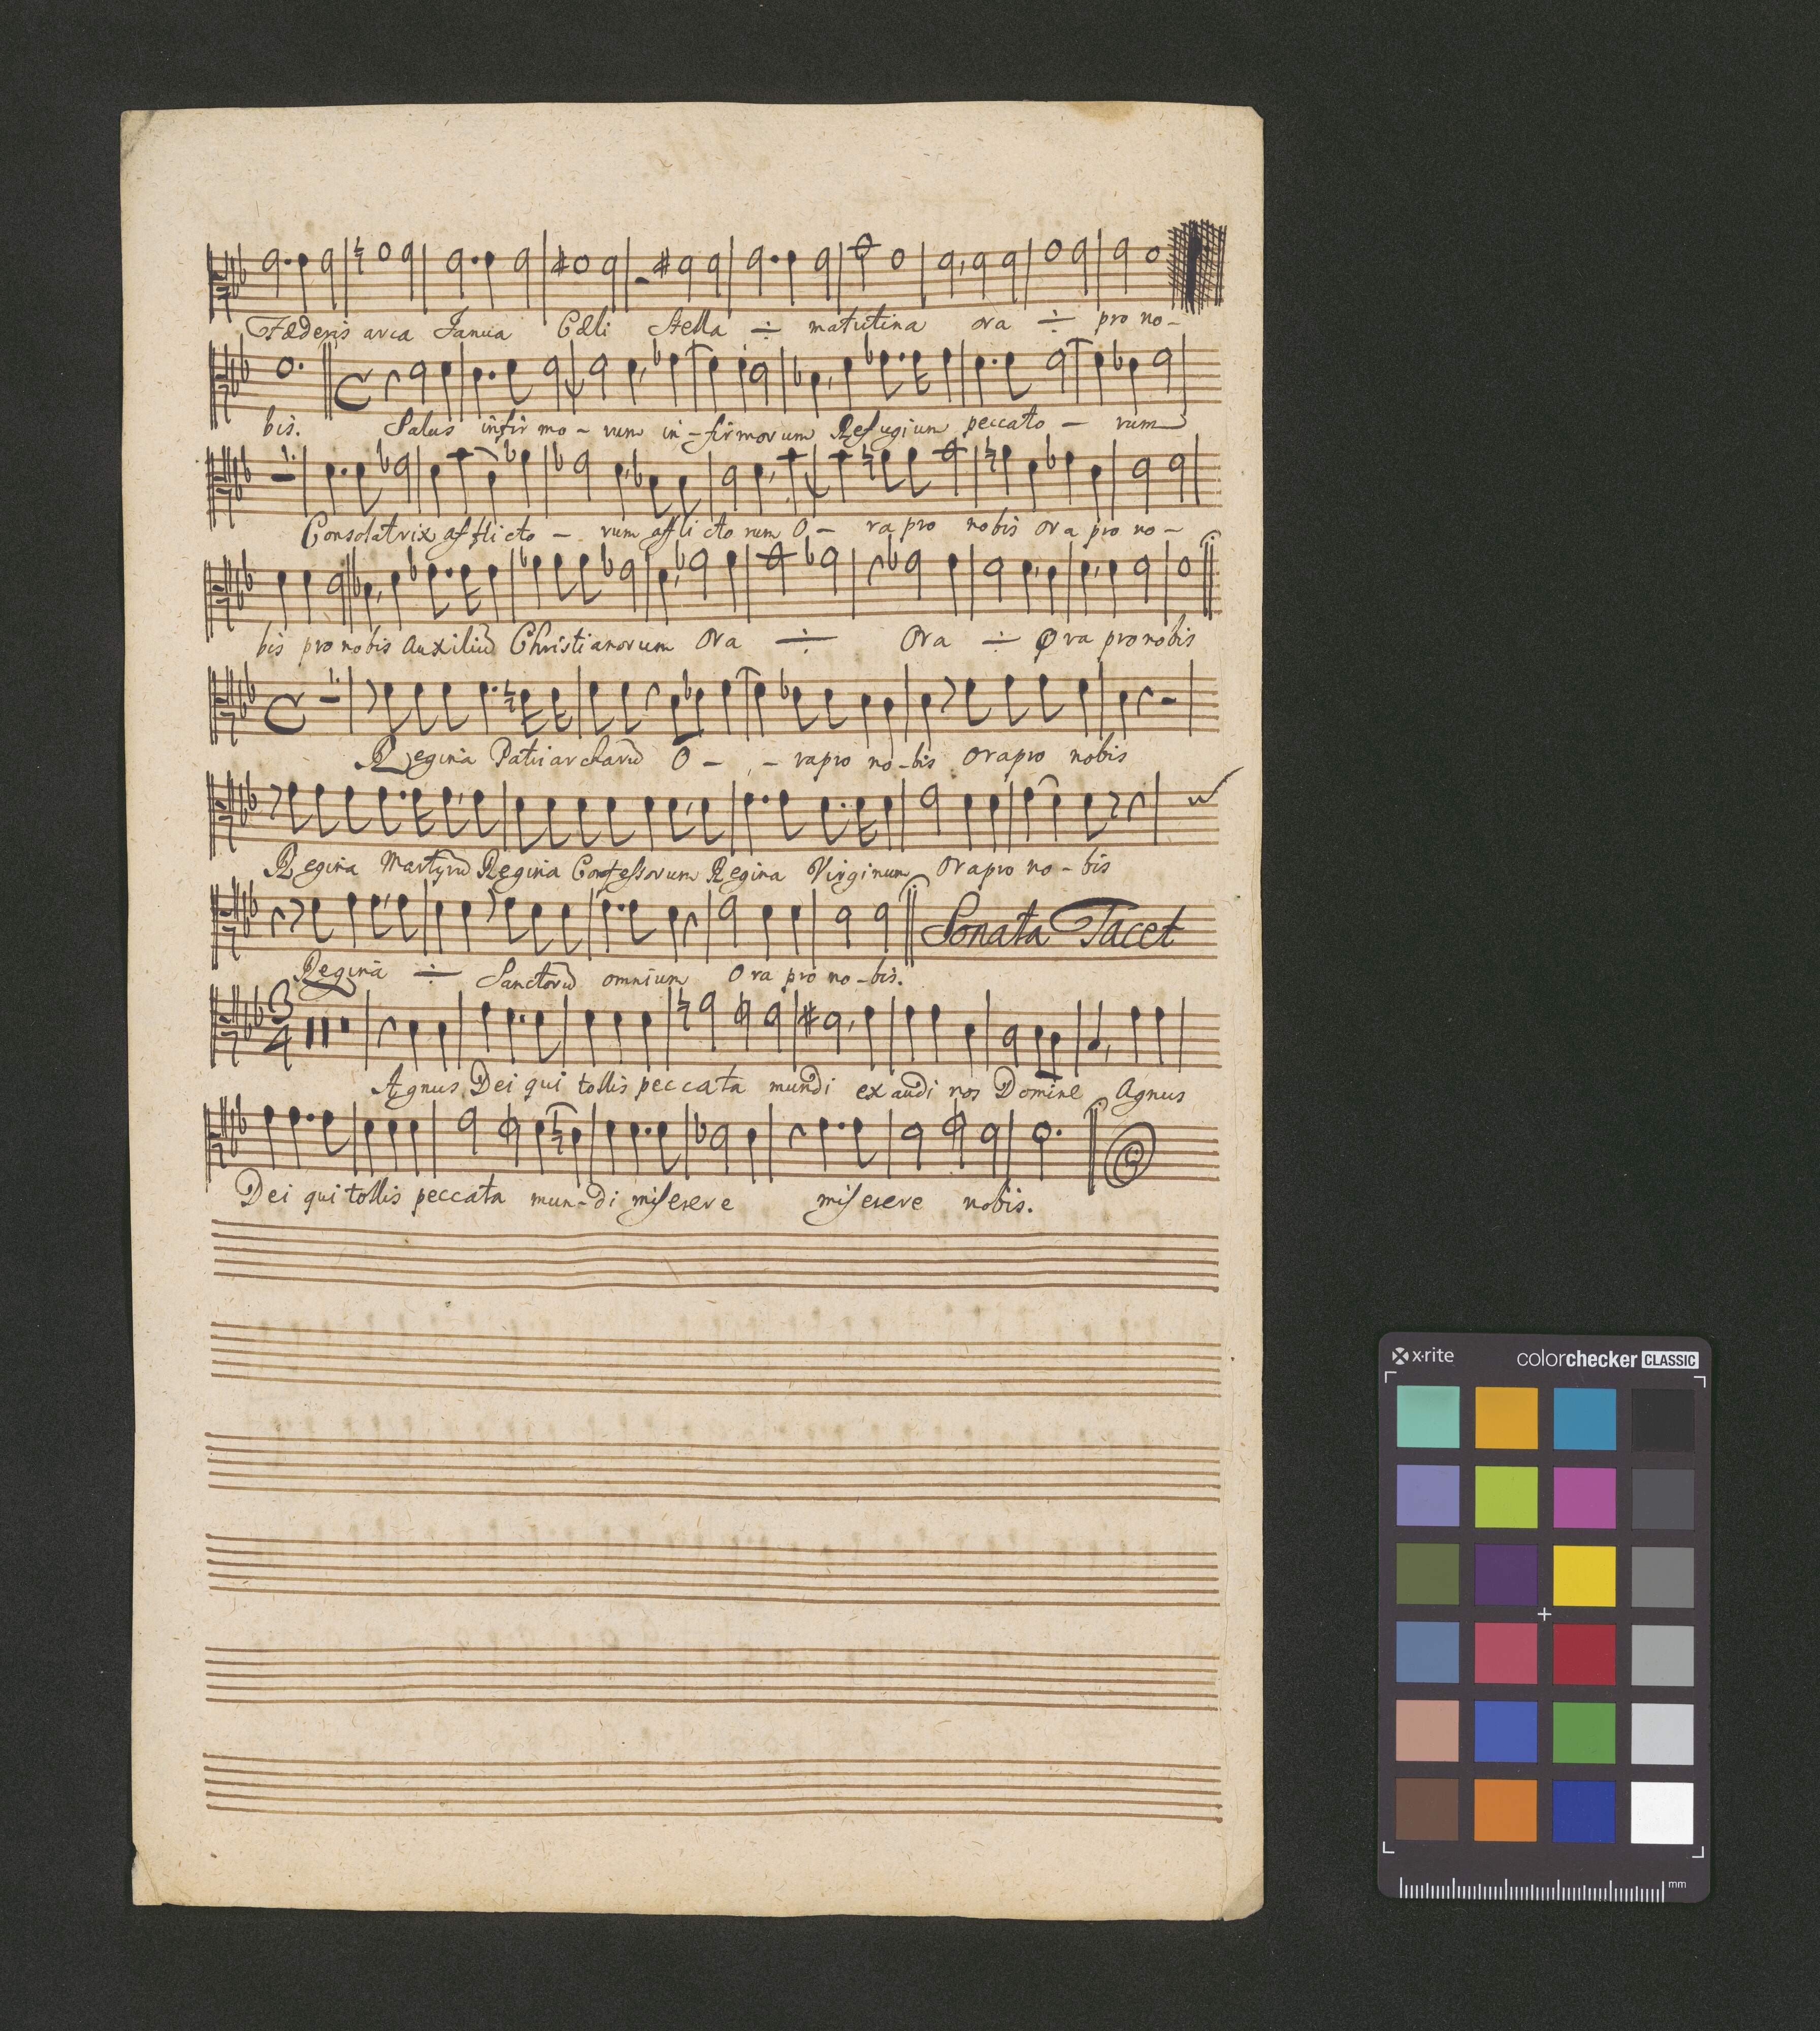 Fæderis arca Janua Cæli Stella ÷ matutina ora ÷ pro no-
bis. Salus infirmo - rum in-firmorum Refugium peccato - rum
Consolatrix afflicto - rum afflictorum O - ra pro nobis ora pro no-
bis pro nobis Auxiliū Christianorum Ora ÷ Ora ÷ Ora pro nobis
C Regina Patriarcharū O - - ra pro no-bis Ora pro nobis
Regina Martyrū Regina Confessorum Regina Virginum Ora pro no-bis
Sonata Tacet
Regina ÷ Sanctorū omnium Ora pro no-bis.
3
4
Agnus Dei qui tollis peccata mundi exaudi nos Domine Agnus
Dei qui tollis peccata mun-di miserere miserere nobis.
x·rite colorchecker CLASSIC
mm